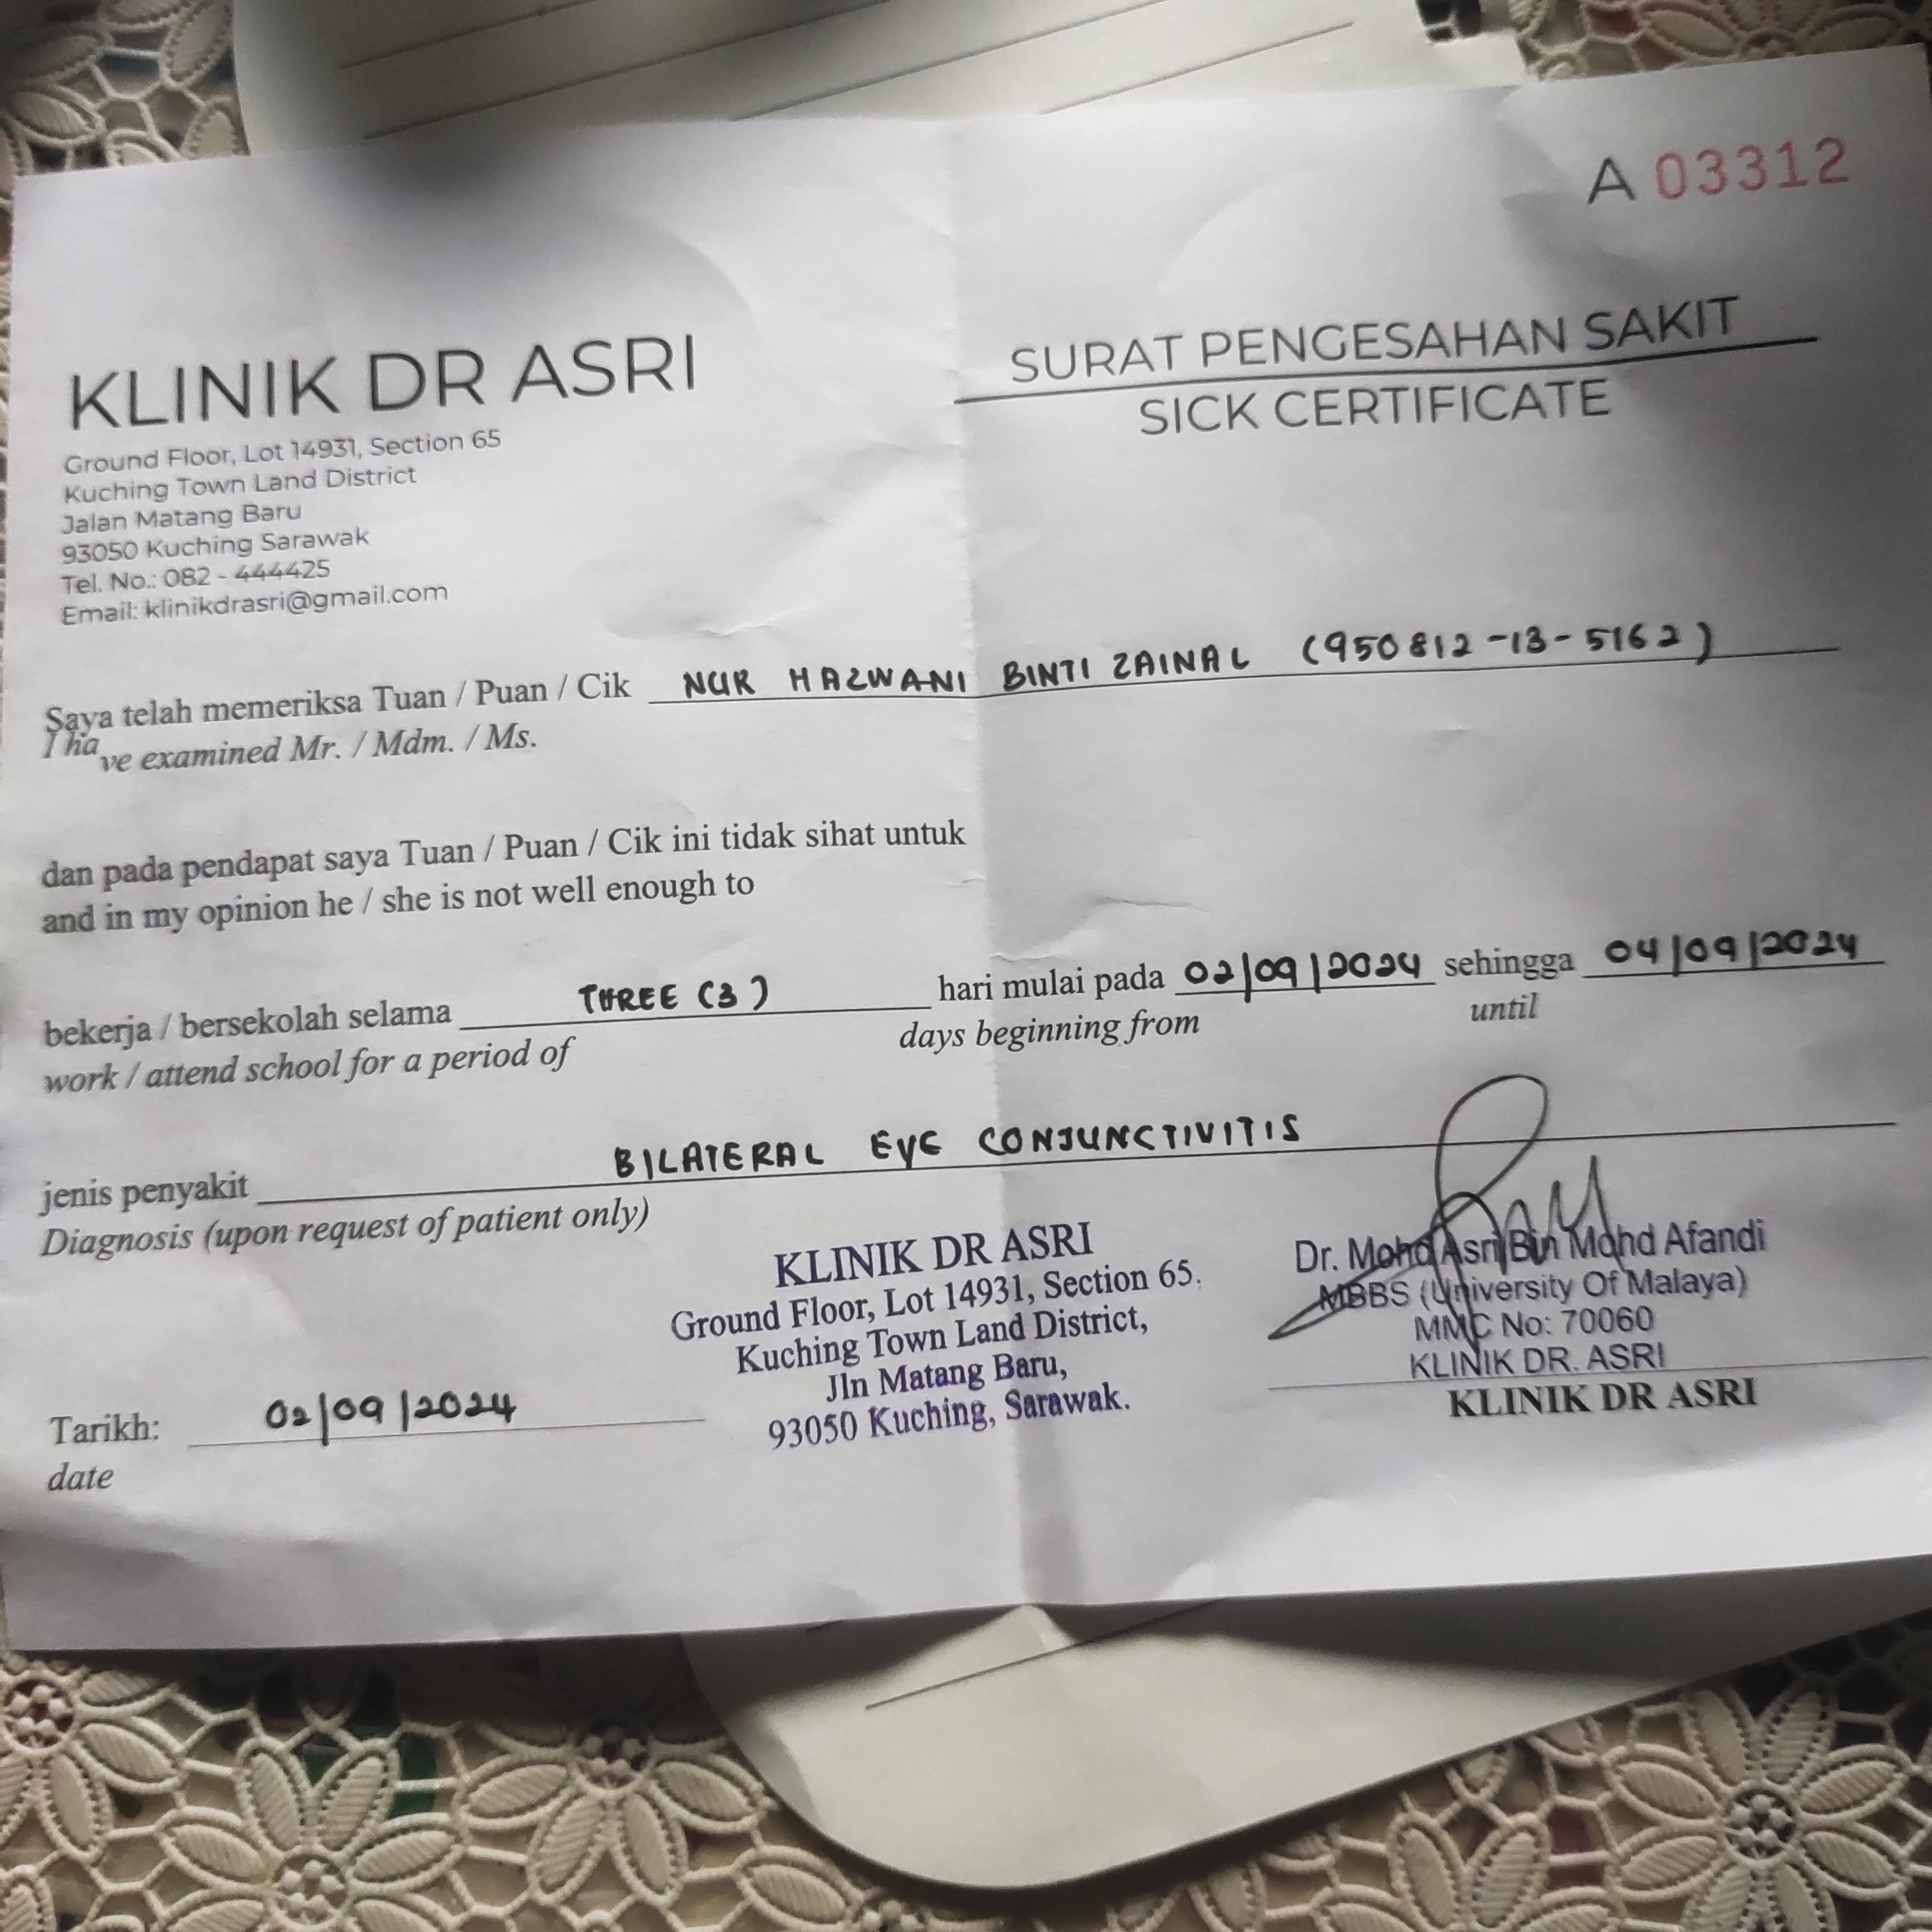 A 03312
KLINIK DR ASRI
Ground Floor, Lot 14931, Section 65
Kuching Town Land District
Jalan Matang Baru
93050 Kuching Sarawak
Tel. No.: 082 - 444425
Email: klinikdrasri@gmail.com
SURAT PENGESAHAN SAKIT
SICK CERTIFICATE
Saya telah memeriksa Tuan / Puan / Cik NUR HAZWANI BINTI ZAINAL (950812-13-5162)
I have examined Mr. / Mdm. / Ms.
dan pada pendapat saya Tuan / Puan / Cik ini tidak sihat untuk
and in my opinion he / she is not well enough to
bekerja / bersekolah selama THREE (3) hari mulai pada 02/09/2024 sehingga 04/09/2024
work / attend school for a period of days beginning from until
jenis penyakit BILATERAL EYE CONJUNCTIVITIS
Diagnosis (upon request of patient only)
KLINIK DR ASRI
Ground Floor, Lot 14931, Section 65,
Kuching Town Land District,
Jln Matang Baru,
93050 Kuching, Sarawak.
Dr. Mohd Asri Bin Mohd Afandi
MBBS (University Of Malaya)
MMC No: 70060
KLINIK DR. ASRI
KLINIK DR ASRI
Tarikh: 02/09/2024
date